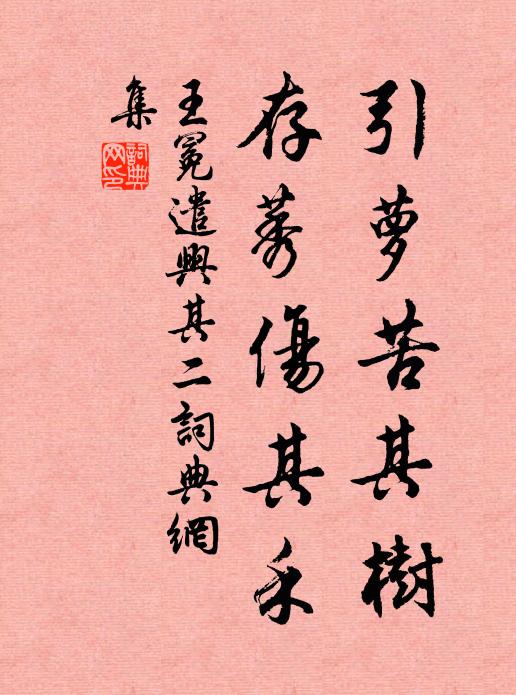 引萝苦其樹
存莠傷其禾
王冕遣興其二詞典網
集
詞典
网印